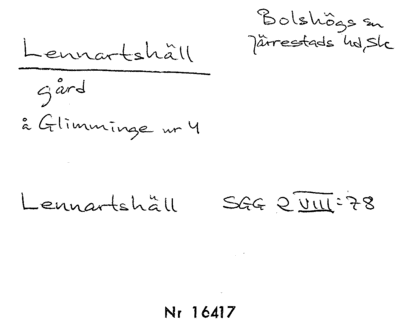 Lennartshäll
Bolshögs sn
Järrestads hd, Sk
gård
å Glimminge nr 4
Lennartshäll SGG 2 VIII:78
Nr 16417